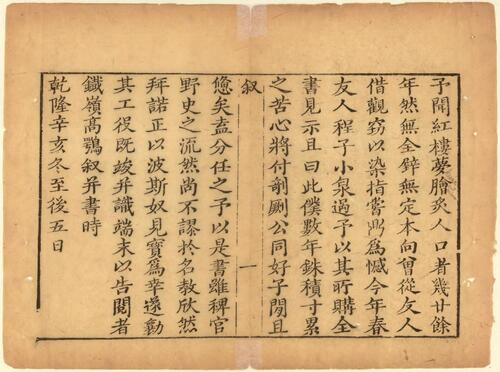 予聞紅樓夢膾炙人口者幾廿餘
年然無全璧無定本向曾從友人
借觀竊以染指嘗鼎爲憾今年春
友人程子小泉過予以其所購全
書見示且曰此僕數年銖積寸累
之苦心將付剞劂公同好子閒且
叙
一
憊矣盍分任之予以是書雖稗官
野史之流然尚不謬於名教欣然
拜諾正以波斯奴見寳爲幸遂勷
其工役既竣并識端末以告閱者
鐵嶺高鶚叙并書時
乾隆辛亥冬至後五日